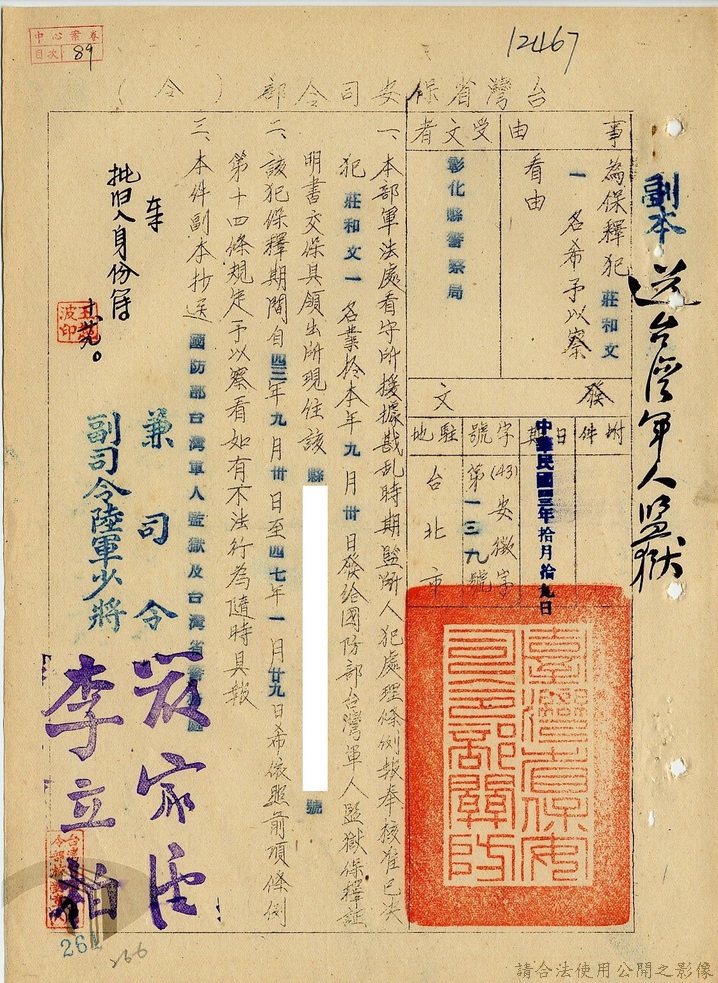 中心案卷
目次:89
12467
副本
送台灣軍人監獄
台灣省保安司令部(令)
事由
為保釋犯莊和文
一名希予以察
看由
受文者
彰化縣警察局
發文
附件
日期
中華民國四三年拾月拾九日
字號
(43)安徵字
第一三九號
駐地
台北市
臺灣省保安司令部關防
一、本部軍法處看守所援據戡乱時期監所人犯處理條例報奉核准已决
犯莊和文一名業於本年九月卅日發給國防部台灣軍人監獄保釋証
明書交保具領出所現住該縣
號
二、該犯保釋期間自四三年九月卅日至四七年一月廿九日希依照前項條例
第十四條規定予以察看如有不法行為隨時具報
三、本件副本抄送國防部台灣軍人監獄及台灣省警務處
兼司令
嚴家淦
副司令陸軍少將
李立柏
批归入身份簿
261
266
請合法使用公開之影像